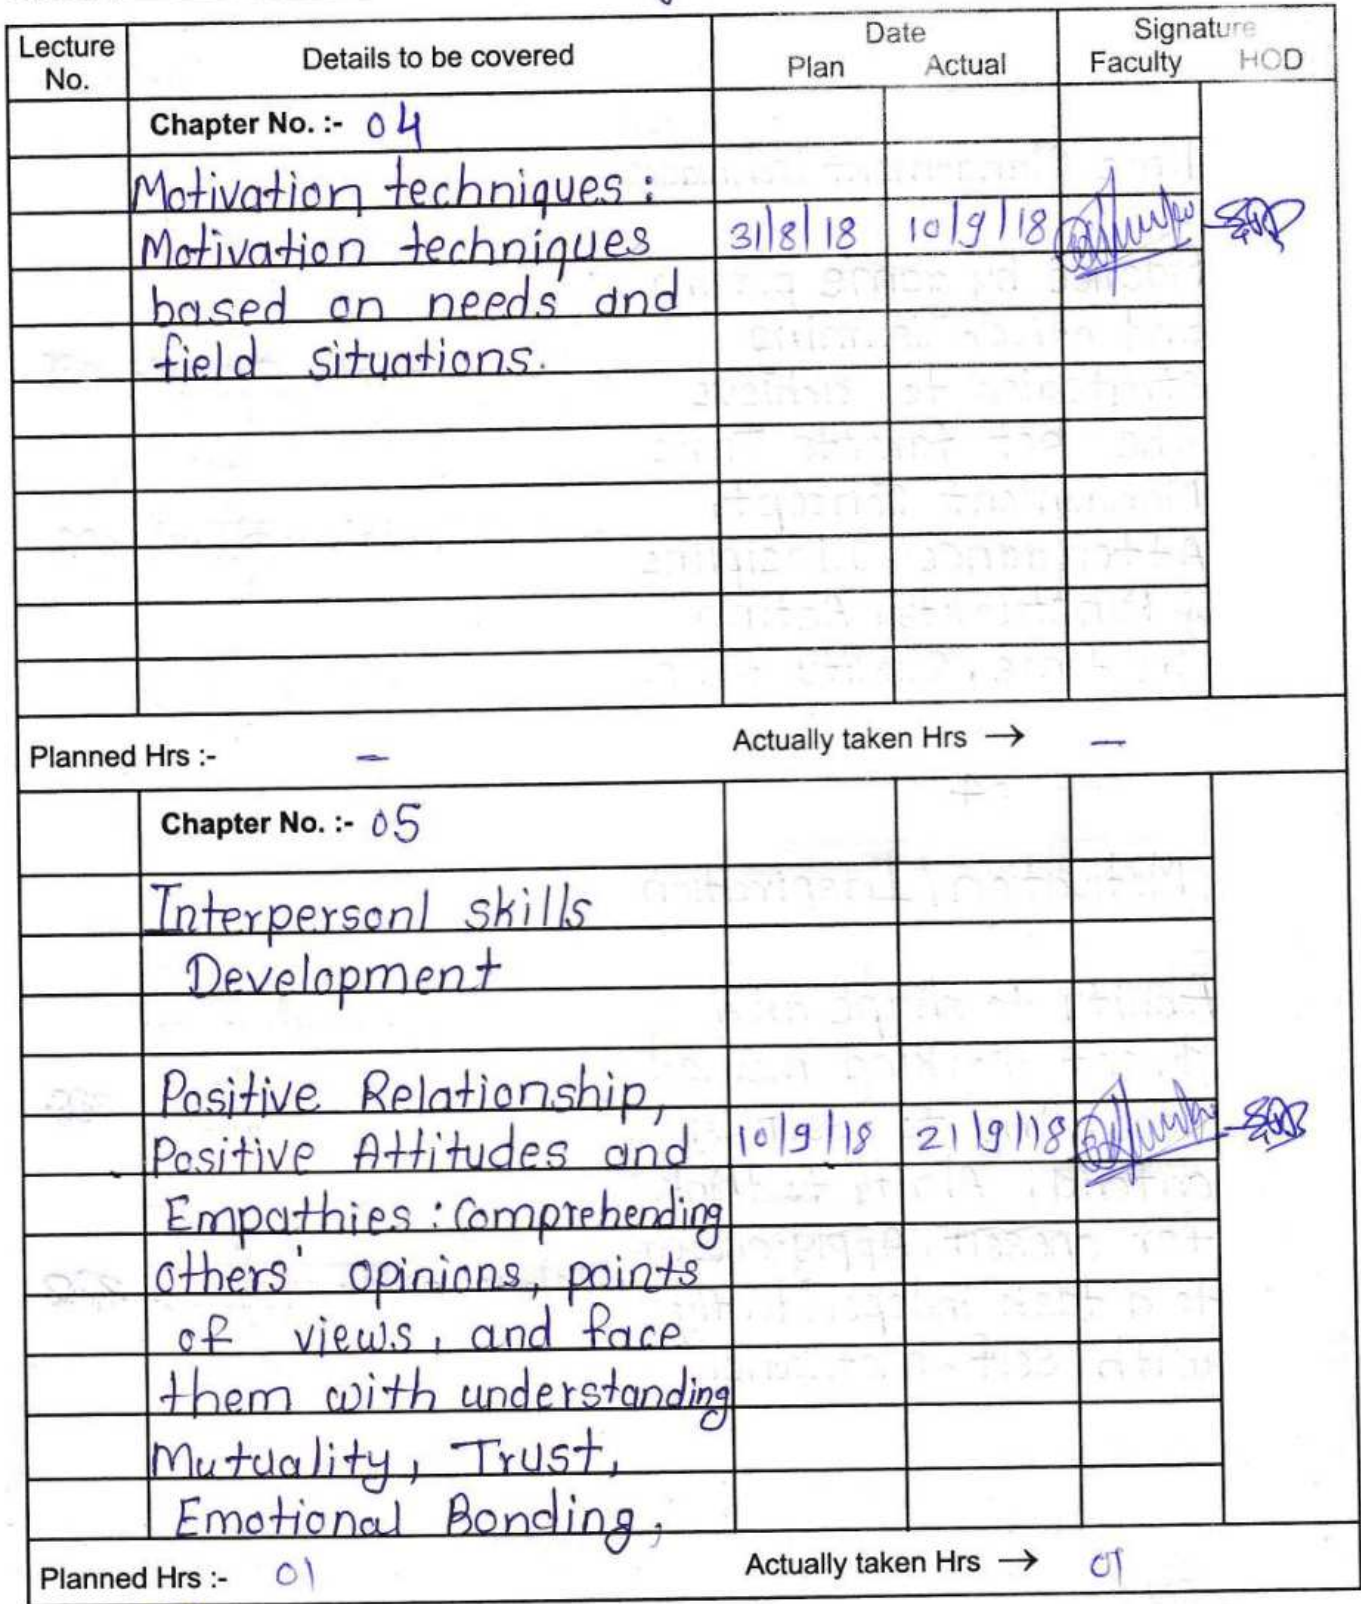 Lecture No. Details to be covered Date Plan Actual Signature Faculty HOD
Chapter No. :- 04
Motivation techniques :
Motivation techniques 31/8/18 10/9/18
based on needs and
field situations.
Planned Hrs :- – Actually taken Hrs → –
Chapter No. :- 05
Interpersonl skills
Development
Positive Relationship,
Positive Attitudes and 10/9/18 21/9/18
Empathies : Comprehending
others' opinions, points
of views, and face
them with understanding
Mutuality, Trust,
Emotional Bonding,
Planned Hrs :- 01 Actually taken Hrs → 01